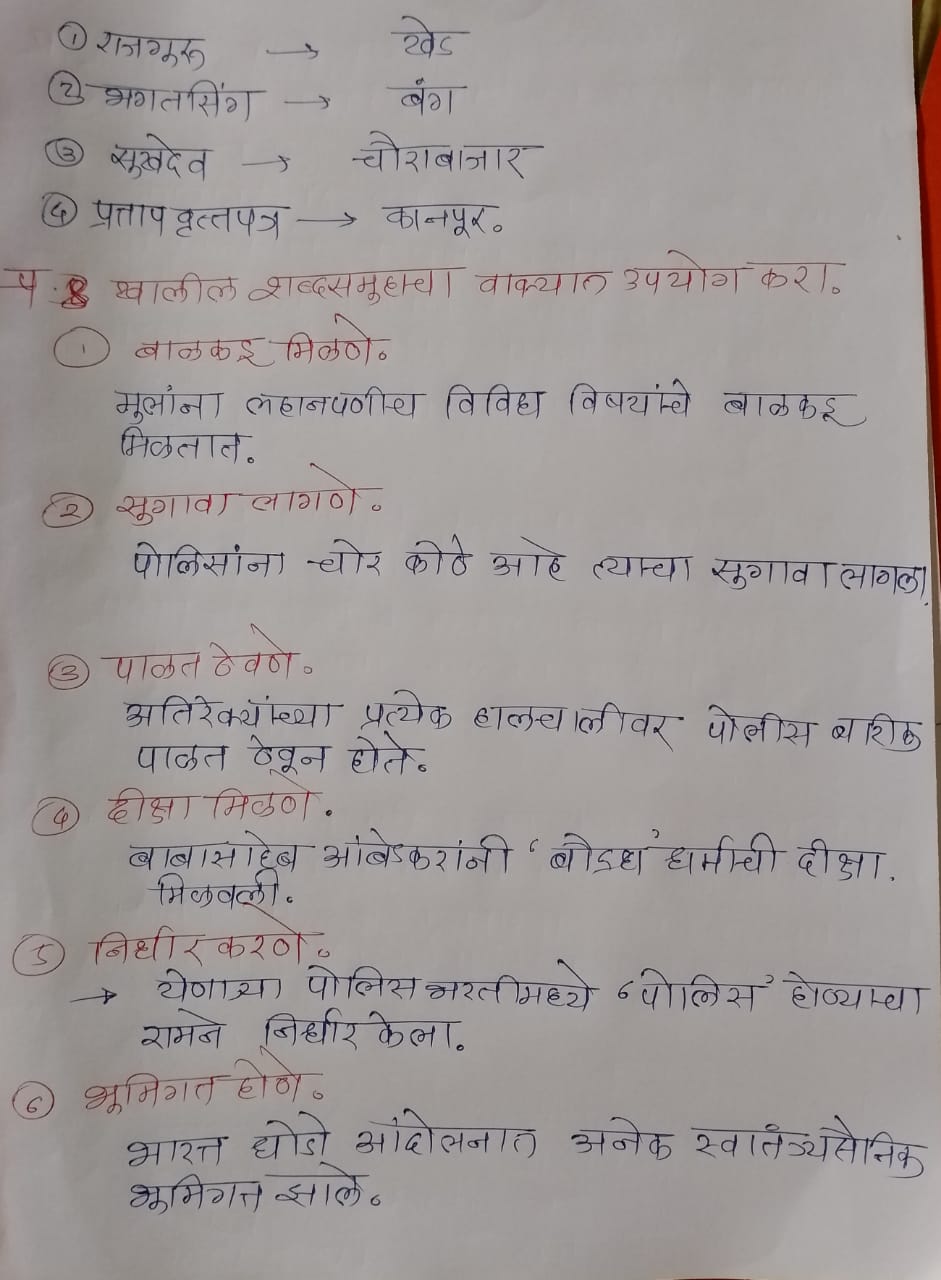 ① राजगुरू → खेड
② भगतसिंग → बंग
③ सुखदेव → चौराबाजार
④ प्रताप वृत्तपत्र → कानपूर.
प्र. 8 खालील शब्दसमुहाचा वाक्यात उपयोग करा.
① बाळकडू मिळणे.
मुलांना लहानपणीच विविध विषयांचे बाळकडू
मिळतात.
② सुगावा लागणे.
पोलिसांना चोर कोठे आहे त्याचा सुगावा लागला.
③ पाळत ठेवणे.
अतिरेक्यांच्या प्रत्येक हालचालीवर पोलीस बारीक
पाळत ठेवून होते.
④ दीक्षा मिळणे.
बाबासाहेब आंबेडकरांनी 'बौद्ध' धर्माची दीक्षा.
मिळवली.
⑤ निर्धार करणे.
→ येणाऱ्या पोलिस भरतीमध्ये 'पोलिस' होण्याचा
रामने निर्धार केला.
⑥ भूमिगत होणे.
भारत छोडो आंदोलनात अनेक स्वातंत्र्यसैनिक
भूमिगत झाले.